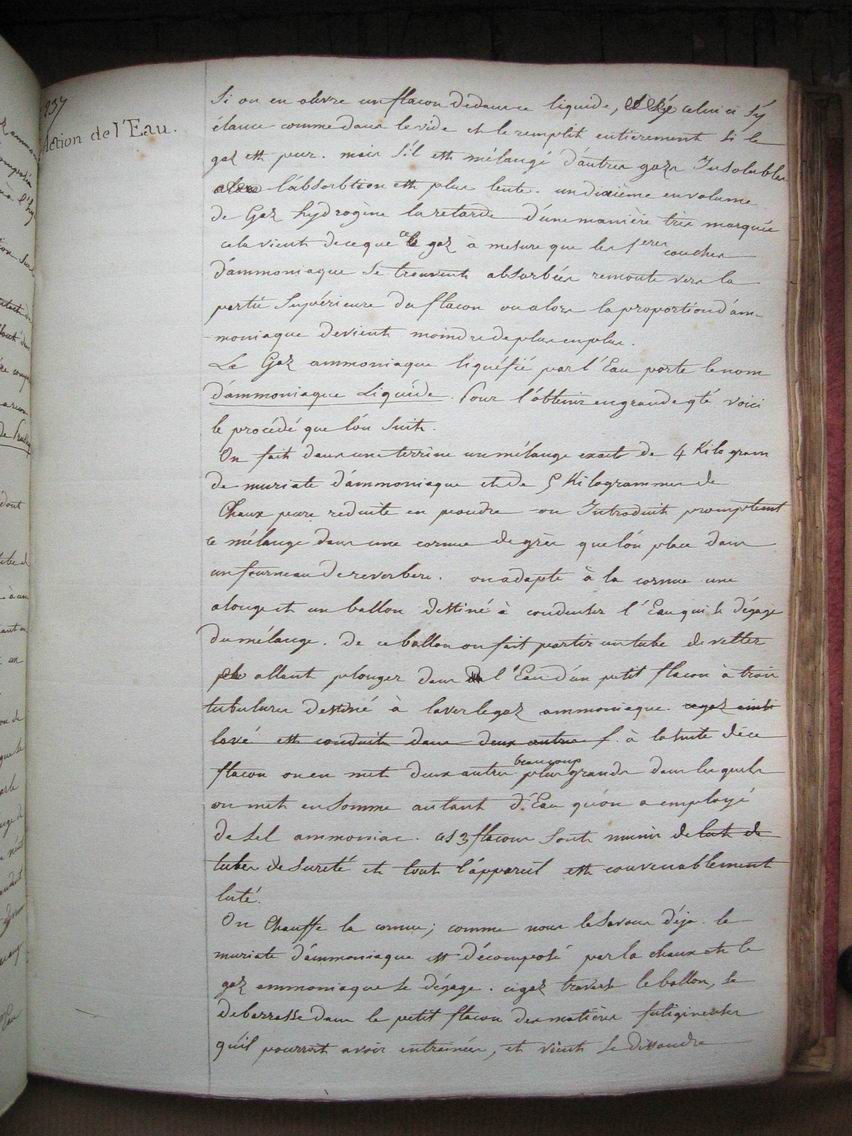 237
Action de l'Eau.
Si on en ouvre un flacon dedans ce liquide, celui ci s'y
élance comme dans le vide et le remplit entièrement si le
gaz est pur. mais s'il est mélangé d'autres gazs Insolubles
alors l'absorbtion est plus lente. un dixième en volume
de Gaz hydrogène la retarde d'une manière très marquée
cela vient de ce que ce gaz à mesure que les 1eres couches
d'ammoniaque se trouvent absorbées remonte vers la
partie Supérieure du flacon ou alors la proportion d'am-
moniaque devient moindre de plus en plus.
Le Gaz ammoniaque liquéfié par l'Eau porte le nom
d'ammoniaque Liquide. Pour l'obtenir en grande qté voici
le procédé que l'on Suit.
On fait dans une terrine un mélange exact de 4 Kilogram
de muriate d'ammoniaque et de 5 Kilogrammes de
Chaux pure réduite en poudre on Introduit promptement
ce mélange dans une cornue de grès que l'on place dans
un fourneau de reverbere. on adapte à la cornue une
alonge et un ballon destiné à condenser l'Eau qui se dégage
du mélange. de ce ballon on fait partir un tube de
allant plonger dans l'Eau d'un petit flacon à trois
tubulures destiné à laver le gaz ammoniaque. ce gaz ainsi
lavé est conduit dans deux autres f. à la suite de ce
flacon on en met deux autres beaucoup plus grands dans lesquels
on met en Somme autant d'Eau qu'on a employé
de Sel ammoniac. ces 3 flacons sont munis de
tubes de Sureté et tout l'appareil est convenablement
luté.
On Chauffe la cornue; comme nous le Savons déja le
muriate d'ammoniaque est décomposé par la chaux et le
gaz ammoniaque se dégage. ce gaz traverse le ballon, se
debarrasse dans le petit flacon des matières fuligineuses
qu'il pourrait avoir entrainées, et vient Se dissoudre